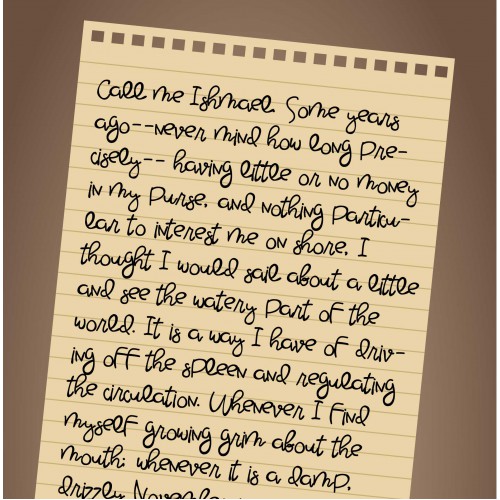 Call me Ishmael. Some years
ago--never mind how long pre-
cisely-- having little or no money
in my purse, and nothing particu-
lar to interest me on shore, I
thought I would sail about a little
and see the watery part of the
world. It is a way I have of driv-
ing off the spleen and regulating
the circulation. Whenever I find
myself growing grim about the
mouth; whenever it is a damp,
drizzly November